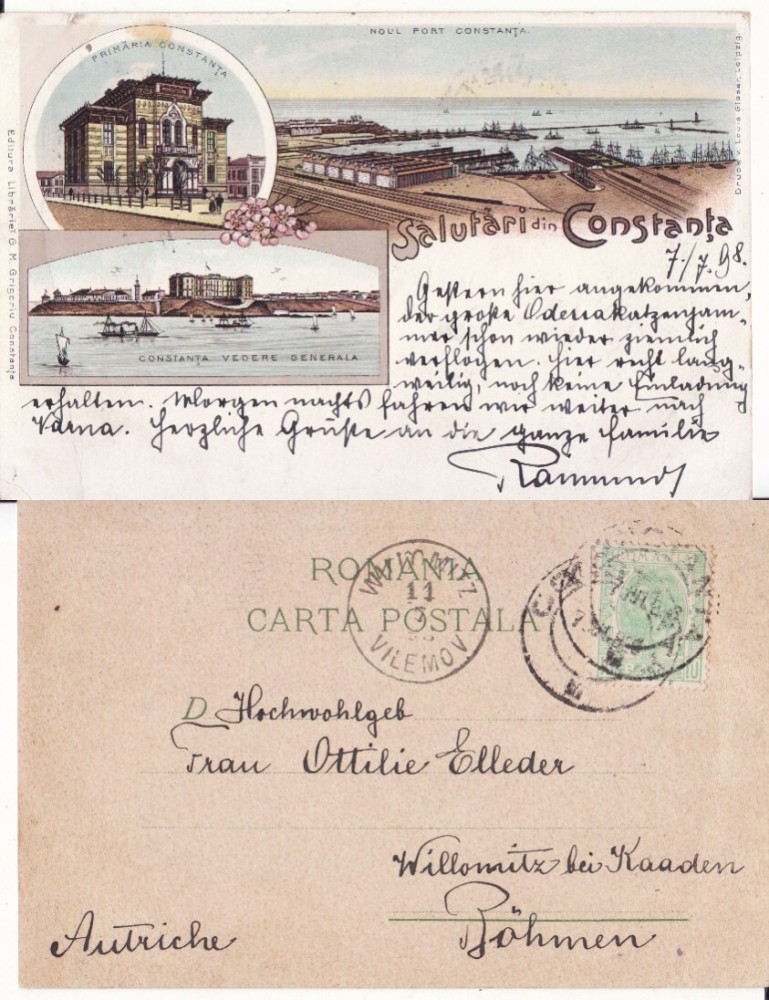 PRIMĂRIA CONSTANȚA
NOUL PORT CONSTANȚA.
Druck v. Louis Glaser, Leipzig.
Editura Librăriei G. M. Grigoriu Constanta
Salutări din Constanţa
7./7. 98.
CONSTANTA VEDERE GENERALA
Gestern hier angekommen,
der große Odessakatzenjam-
mer schon wieder ziemlich
verflogen. Hier recht lang-
weilig, noch keine Einladung
erhalten. Morgen nachts fahren wir weiter nach
Varna. Herzliche Grüße an die ganze Familie
Raimund
ROMANIA
CARTA POSTALA
WILLOMITZ
11
VILEMOV
CONSTANTA
10
D. Hochwohlgeb
Frau Ottilie Elleder
Willomitz bei Kaaden
Böhmen
Autriche